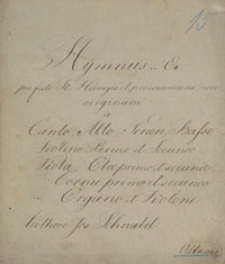 15
Hymnus in E
pro festo St. Hedwigis et
virginum
a
Canto, Alto Tenore, Basso
Violino Primo et Secundo
Viola, Clar primo et secundo
Cornu primo et secundo
Organo et Violone
Authore Jos Schnabel